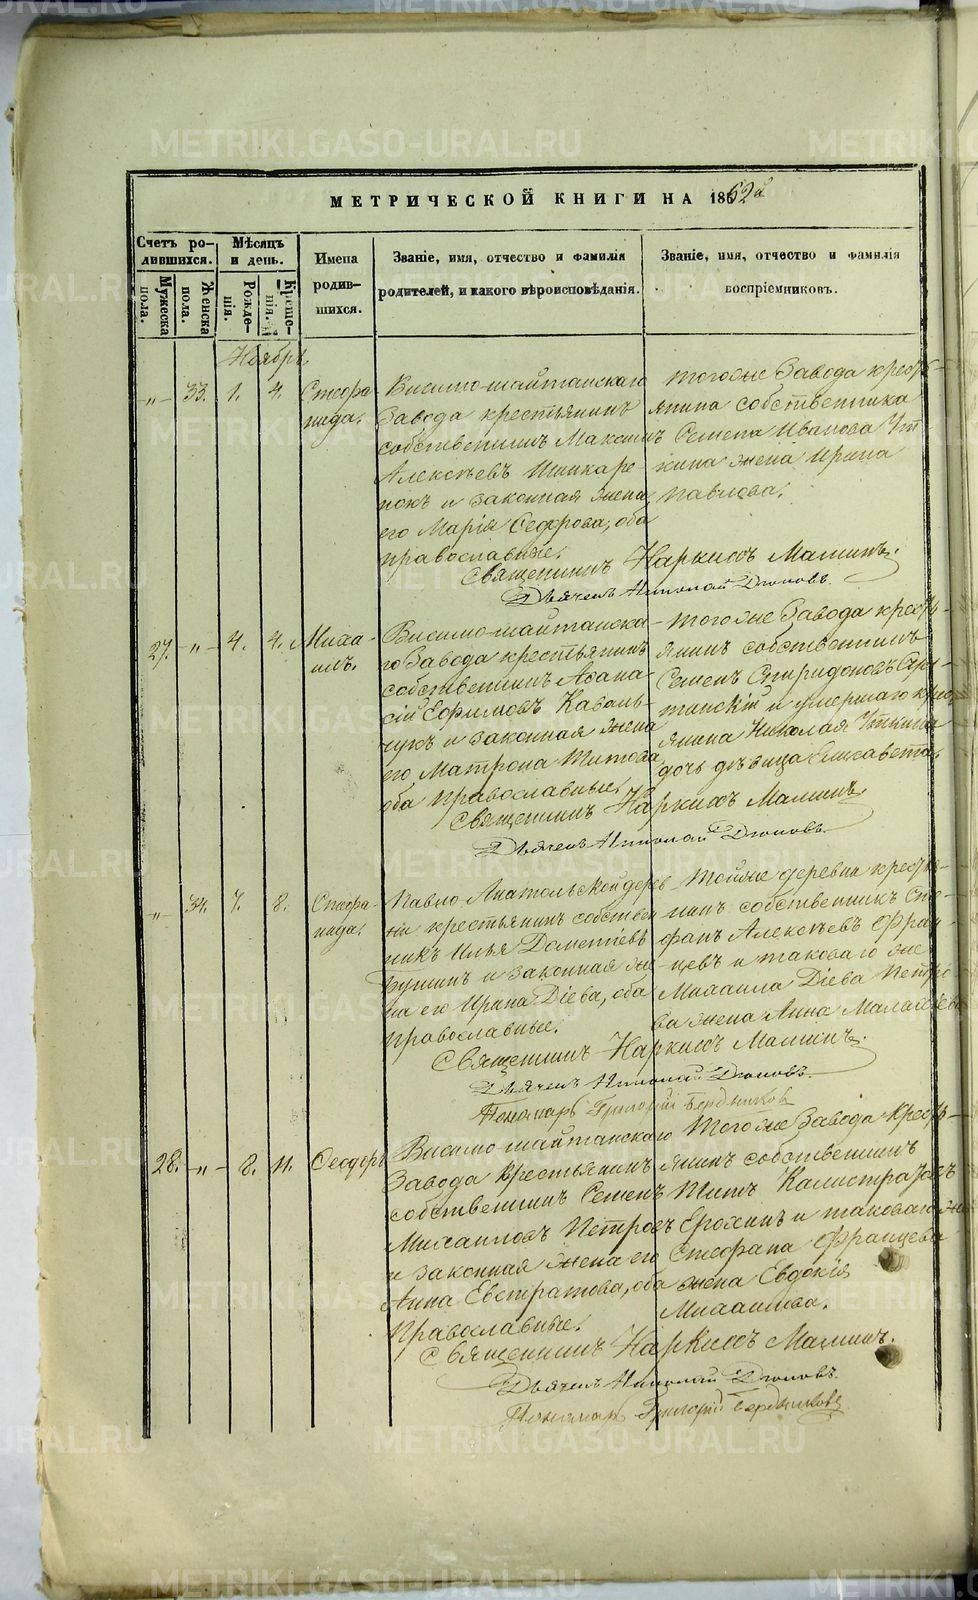 METRIKI.GASO-URAL.RU
МЕТРИЧЕСКОЙ КНИГИ НА 1862й
Счетъ родившихся.
Мужеска пола.
Женска пола.
Мѣсяцъ и день.
Рожденія.
Крещенія.
Имена родившихся.
Званіе, имя, отчество и фамилія
родителей, и какого вѣроисповѣданія.
Званіе, имя, отчество и фамилія
воспріемниковъ.
Ноябрь
-„- 33. 1. 4. Стефанида.
Висимо-шайтанскаго
Завода крестьянинъ
собственникъ Максимъ
Алексѣевъ Шинкаренокъ
и законная жена
его Марія Седорова, оба
православные.
тогоже Завода крестьянина
собственника
Семена Иванова Уткина
жена Ирина
Павлова.
Священникъ Наркисъ Маминъ.
Дьячекъ Николай Дюковъ.
27. -„- 4. 4. Михаилъ.
Висимошайтанскаго
Завода крестьянинъ
собственникъ Афанасій
Ефимовъ Ковальчукъ
и законная жена
его Матрона Титова,
оба православные.
тогоже Завода крестьянинъ
собственникъ
Семенъ Спиридоновъ
и умершаго крестьянина
Николая Уткина
дочь дѣвица Елисавета.
Священникъ Наркисъ Маминъ.
Дьячекъ Николай Дюковъ.
-„- 34. 7. 8. Стефанида.
Павло Анатольской деревни
крестьянинъ собственникъ
Илья Дометіевъ
и законная жена
его Ирина Діева, оба
православные.
Тойже деревни крестьянинъ
собственникъ Стефанъ
Алексѣевъ Францевъ
и таковаго же
Михаила Діева Петрова
жена Анна
Священникъ Наркисъ Маминъ.
Дьячекъ Николай Дюковъ.
Пономарь Григорій Бердниковъ
28. -„- 8. 11. Феодоръ
Висимо шайтанскаго
Завода крестьянинъ
собственникъ Семенъ
Михаиловъ Петровъ
и законная жена его
Анна Евстратова, оба
православные.
Тогоже Завода крестьянинъ
собственникъ
Титъ Калистратовъ
Ерохинъ и таковаго же
Стефана Францева
жена Евдокія
Михаилова.
Священникъ Наркисъ Маминъ.
Дьячекъ Николай Дюковъ.
Пономарь Григорій Бердниковъ
METRIKI.GASO-URAL.RU